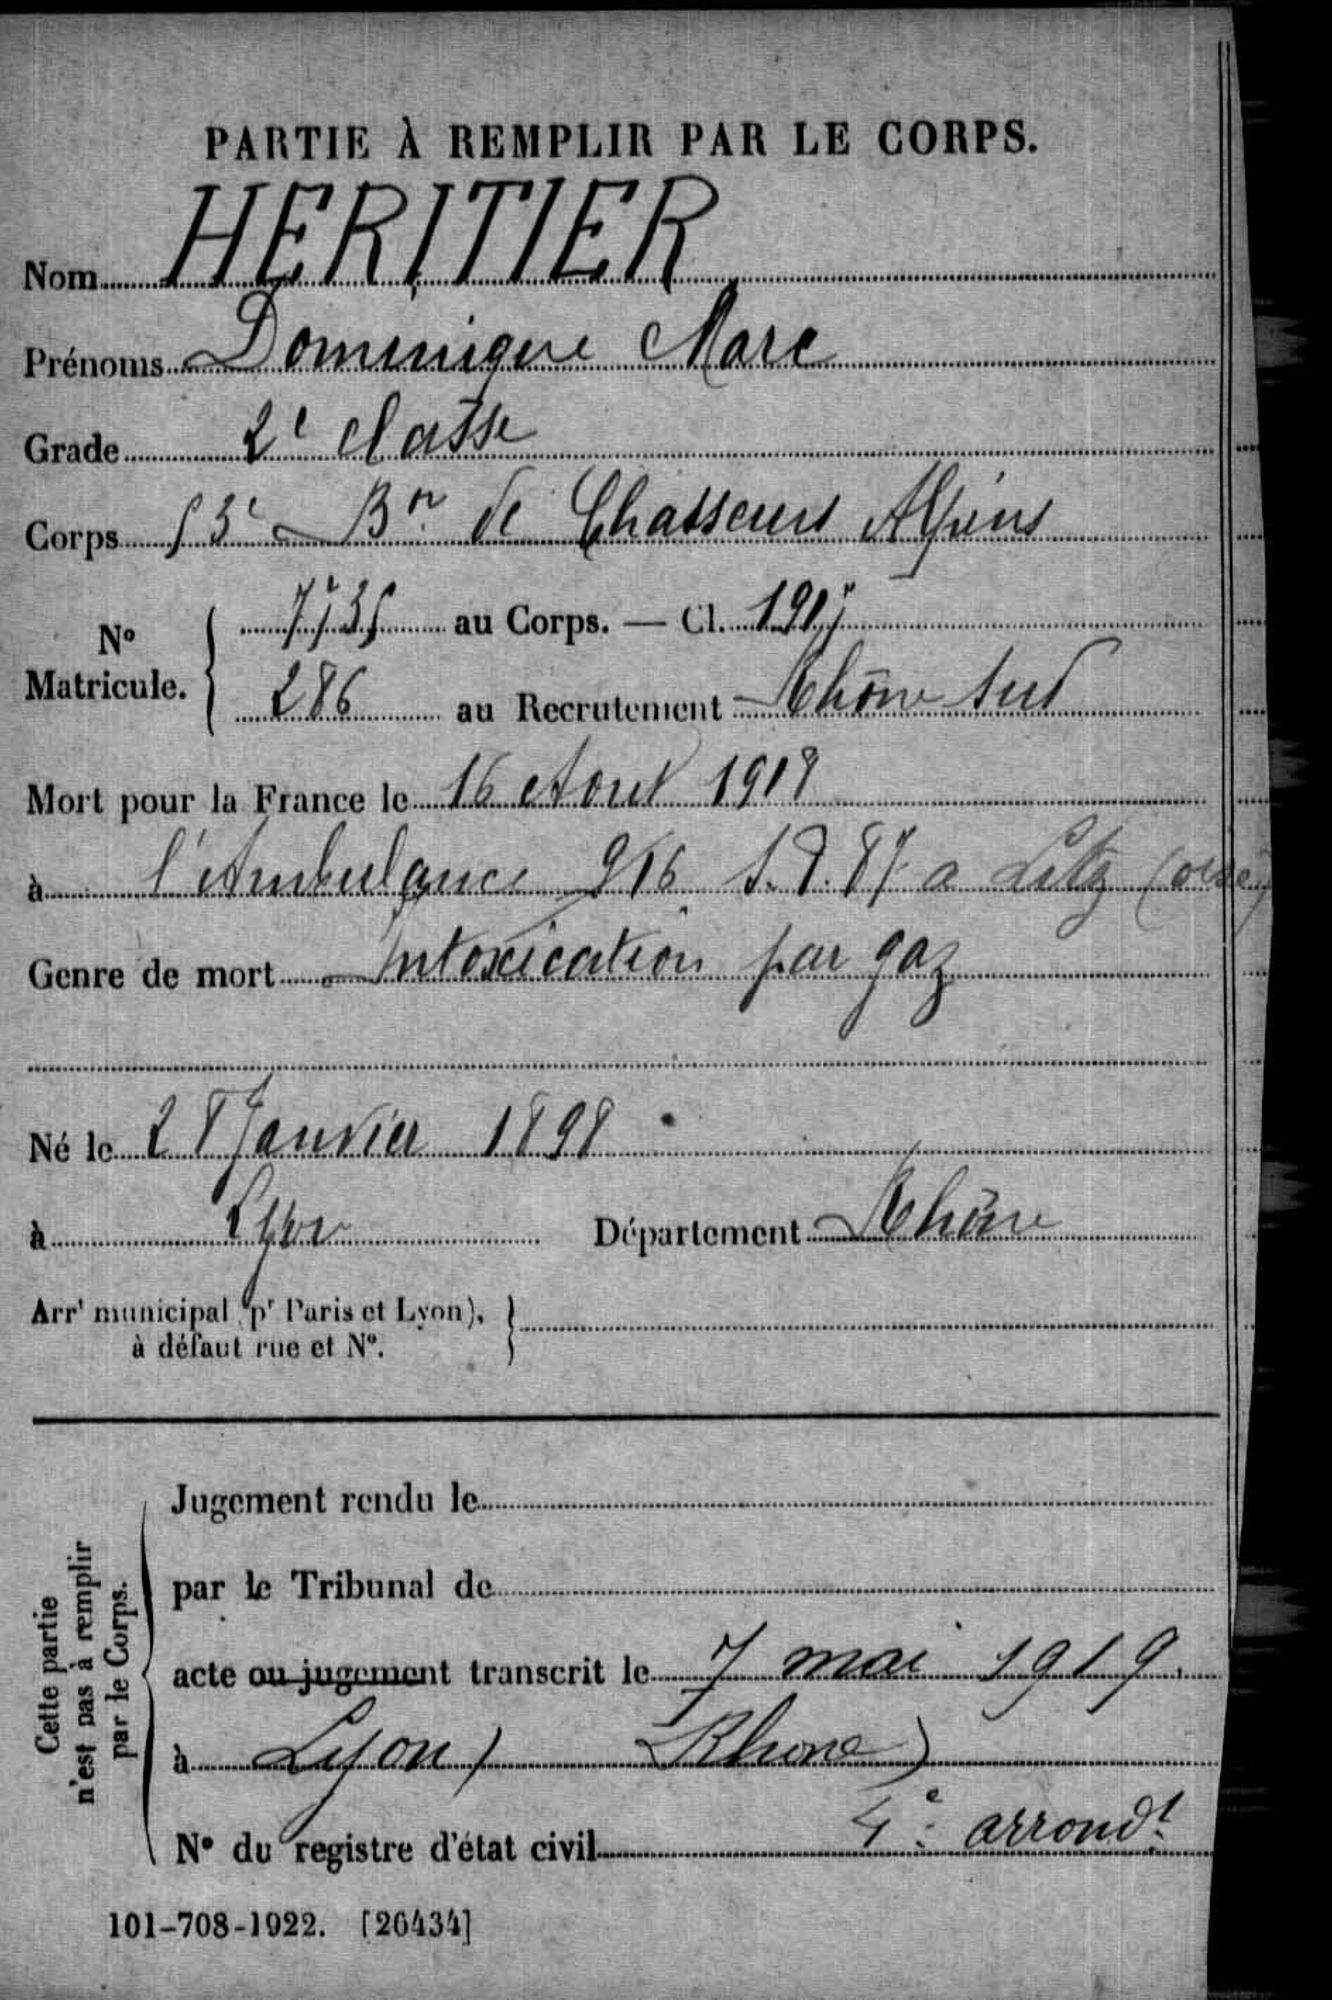 PARTIE À REMPLIR PAR LE CORPS.
Nom HERITIER
Prénoms Dominique Marc
Grade 2e classe
Corps 53e Bn de Chasseurs Alpins
No Matricule. 7735 au Corps. — Cl. 1917
286 au Recrutement Rhône Sud
Mort pour la France le 16 Aout 1918
à l'Ambulance 9/16 S.P. 87 a Litz (oise)
Genre de mort Intoxication par gaz
Né le 28 Janvier 1898
à Lyon Département Rhône
Arrt municipal (pr Paris et Lyon),
à défaut rue et No.
Cette partie n'est pas à remplir par le Corps.
Jugement rendu le
par le Tribunal de
acte ou jugement transcrit le 7 mai 1919.
à Lyon (Rhone)
No du registre d'état civil 4e arrondt
101-708-1922. [26434]